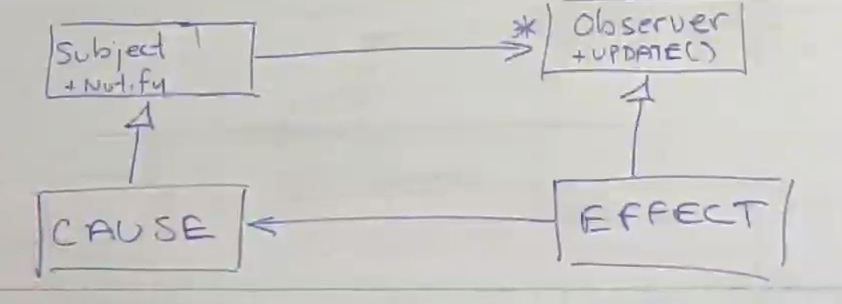 Subject
+ Notify
* Observer
+ UPDATE()
CAUSE
EFFECT